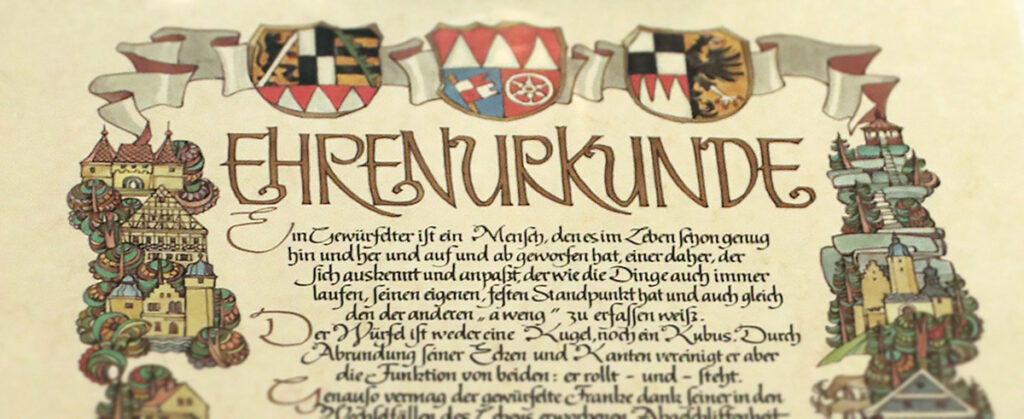 EHRENURKUNDE
Ein Gewürfelter ist ein Mensch, den es im Leben schon genug
hin und her und auf und ab geworfen hat, einer daher, der
sich auskennt und anpaßt, der wie die Dinge auch immer
laufen, seinen eigenen, festen Standpunkt hat und auch gleich
den der anderen „a weng" zu erfassen weiß.
Der Würfel ist weder eine Kugel, noch ein Kubus. Durch
Abrundung seiner Ecken und Kanten vereinigt er aber
die Funktion von beiden: er rollt - und - steht.
Genauso vermag der gewürfelte Franke dank seiner in den
Wechselfällen des Lebens erworbenen Abgeschliffenheit